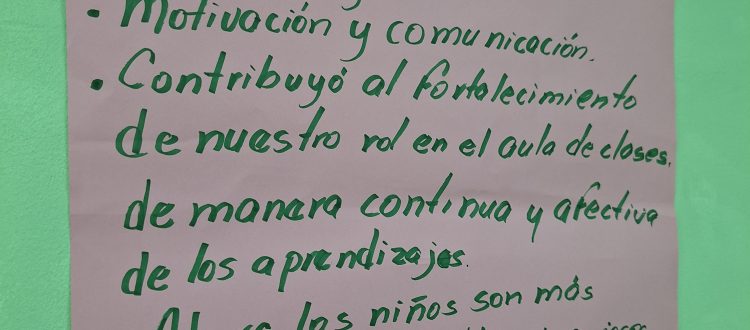 • Motivación y comunicación.
• Contribuyó al fortalecimiento
de nuestro rol en el aula de clases.
de manera continua y afectiva
de los aprendizajes.
los niños son más